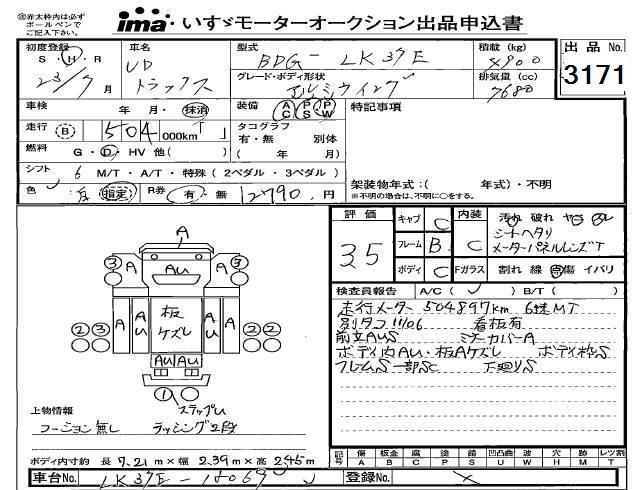 ㊟赤太枠内は必ず
ボールペンで
ご記入下さい。
ima いすゞモーターオークション出品申込書
初度登録 車名 型式 BDG- LK37E 積載 (kg) 出品 No.
S・H・R UD グレード・ボディ形状 4900 3171
23/7月 トラックス アルミウイング 排気量 (cc)
7680
車検 年 月・抹消 装備 AC PS PW 特記事項
走行 (B) 504 000km「 」 タコグラフ
有・無 別体
燃料 G・D・HV 他( ) ( 年 月)
シフト 6 M/T・A/T・特殊 (2ペダル・3ペダル)
架装物年式:( 年式)・不明
色 白 指定 R券 有・無 12790.円 ※不明の場合は、不明に○をする。
評価 キャブ C 内装 汚れ 破れ ヤケ
35 フレーム B C シートヘタリ
メーターパネルレンズT
ボディ C Fガラス 割れ 線 傷 イバリ
検査員報告 A/C( ) B/T( )
走行メーター 504897km 6速MT
別タコ 11/06 看板有
前立AUS ミラーカバーA
ボディ内AU・板Aケズレ ボディ枠S
フレームS一部SC 下廻りS
A
3 A AU A 3
2 3 A AU 板ケズレ AU A 2 2
AU AU
1 ステップU
上物情報
コーション無し ラッシング2段
ボディ内寸約 長 7.21m×幅 2.39m×高 2.45m
記号 傷 板金 腐 塗 錆 凹凸曲 波 穴 無 レツ割
A B C P S U W H M T
車台No. LK37E- 登録No.